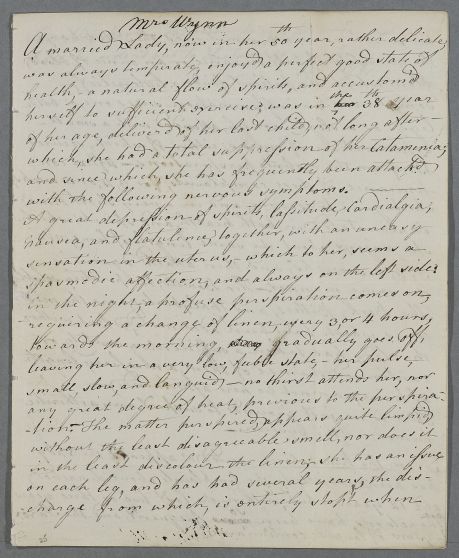 Mrs Wynn
A married Lady, now in her 50th year, rather delicate,
was always temperate, enjoyd a perfect good state of
health, a natural flow of spirits, and accustom'd
herself to sufficient exercise; was in the 38th year
of her age, deliver'd of her last child, not long after
which, she had a total suppression of her Catamenia;
and since which, she has frequently been attack'd
with the following nervous symptoms.
A great depression of spirits, lassitude, Cardialgia,
nausea, and flatulence, together, with an uneasy
sensation in the uterus, which to her, seems a
spasmodic affection, and always on the left side:
in the night, a profuse perspiration comes on,
requiring a change of linen, every 3 or 4 hours,
towards the morning, gradually goes off,
leaving her in a very low, feeble state,- her pulse,
small, slow, and languid,- no thirst attends her, nor
any great degree of heat, previous to the perspira-
-tion. The matter perspired, appears quite limpid,
without the least disagreeable smell, nor does it
in the least discolour the linen; she has an issue
on each leg, and has had several years, the dis-
charge from which, is entirely stopt when